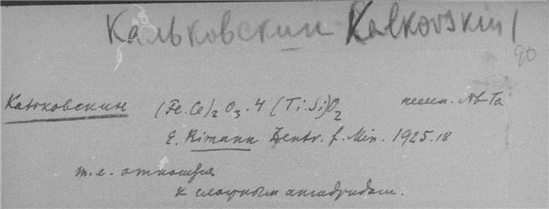 Кальковскин Kalkovskin
90
Кальковскин (Fe.Ce)₂O₃.4(Ti.Si)O₂ Nb-Ta
E. Rimann Zentr. f. Min. 1925.18
т.е. относится
к сложным ангидридам.